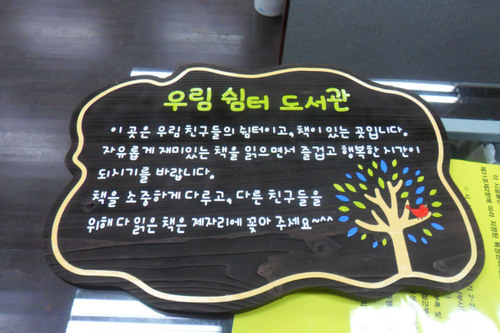 우림 쉼터 도서관
이 곳은 우림 친구들의 쉼터이고, 책이 있는 곳입니다.
자유롭게 재미있는 책을 읽으면서 즐겁고 행복한 시간이
되시기를 바랍니다.
책을 소중하게 다루고, 다른 친구들을
위해 다 읽은 책은 제자리에 꽂아 주세요~^^